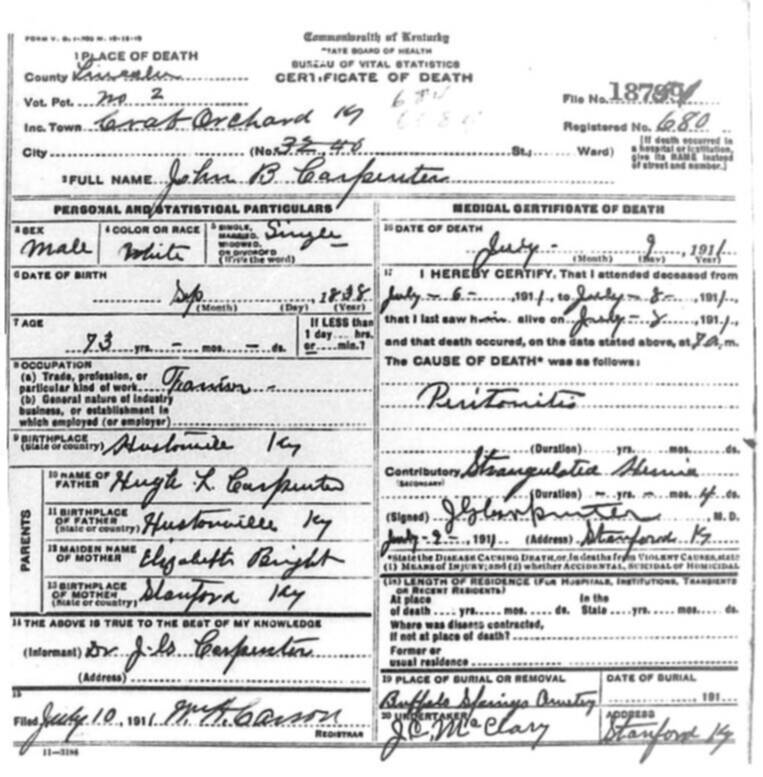 Commonwealth of Kentucky
STATE BOARD OF HEALTH
BUREAU OF VITAL STATISTICS
CERTIFICATE OF DEATH
1 PLACE OF DEATH
County Lincoln
Vot. Pct. No 2
Inc. Town Crab Orchard Ky
City (No. St.; Ward)
File No. 187
Registered No. 680
[If death occurred in a hospital or institution, give its NAME instead of street and number.]
2 FULL NAME John B Carpenter
PERSONAL AND STATISTICAL PARTICULARS
3 SEX Male
4 COLOR OR RACE White
5 SINGLE, MARRIED, WIDOWED, OR DIVORCED (Write the word) Single
6 DATE OF BIRTH
Sep 1838
(Month) (Day) (Year)
7 AGE
73 yrs. - mos. - ds.
If LESS than 1 day ... hrs. or ... min.?
8 OCCUPATION
(a) Trade, profession, or particular kind of work
(b) General nature of industry business, or establishment in which employed (or employer)
9 BIRTHPLACE (State or country) Hustonville Ky
PARENTS
10 NAME OF FATHER Hugh L Carpenter
11 BIRTHPLACE OF FATHER (State or country) Hustonville Ky
12 MAIDEN NAME OF MOTHER Elizabeth Bright
13 BIRTHPLACE OF MOTHER (State or country) Stanford Ky
14 THE ABOVE IS TRUE TO THE BEST OF MY KNOWLEDGE
(Informant) Dr J. G Carpenter
(Address)
15
Filed July 10, 1911 Carson
REGISTRAR
11-3184
MEDICAL CERTIFICATE OF DEATH
16 DATE OF DEATH
July - 9, 1911
(Month) (Day) (Year)
17 I HEREBY CERTIFY, That I attended deceased from
July - 6 -, 1911, to July - 8 -, 1911
that I last saw him alive on July -, 1911,
and that death occured, on the date stated above, at m.
The CAUSE OF DEATH* was as follows:
Peritonitis
(Duration) yrs. mos. ds.
Contributory Strangulated Hernia
(SECONDARY)
(Duration) - yrs. - mos. 4 ds.
(Signed) J G Carpenter, M.D.
July, 1911 (Address) Stanford Ky
*State the DISEASE CAUSING DEATH, or, in deaths from VIOLENT CAUSES, state (1) MEANS OF INJURY; and (2) whether ACCIDENTAL, SUICIDAL OR HOMICIDAL
(18) LENGTH OF RESIDENCE (FOR HOSPITALS, INSTITUTIONS, TRANSIENTS OR RECENT RESIDENTS)
At place of death .... yrs. .... mos. .... ds. In the State .... yrs. .... mos. .... ds.
Where was disease contracted,
if not at place of death?
Former or
usual residence
19 PLACE OF BURIAL OR REMOVAL
Buffalo Springs Cemetery
DATE OF BURIAL
191
20 UNDERTAKER
J. C. McClary
ADDRESS
Stanford Ky